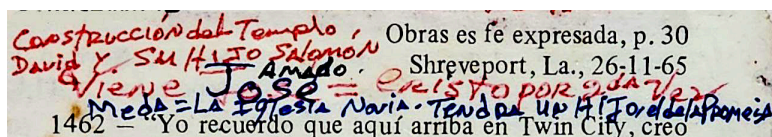 Construcción del Templo,
Obras es fe expresada, p. 30
David Y. SU HIJO Salomón
Shreveport, La., 26-11-65
AMADO.
Viene José = CRISTO POR 2da Vez
Meda = LA IGLESIA Novia. Tendra un HIJO el de la Promesa
1462 – "Yo recuerdo que aquí arriba en Twin City, creo